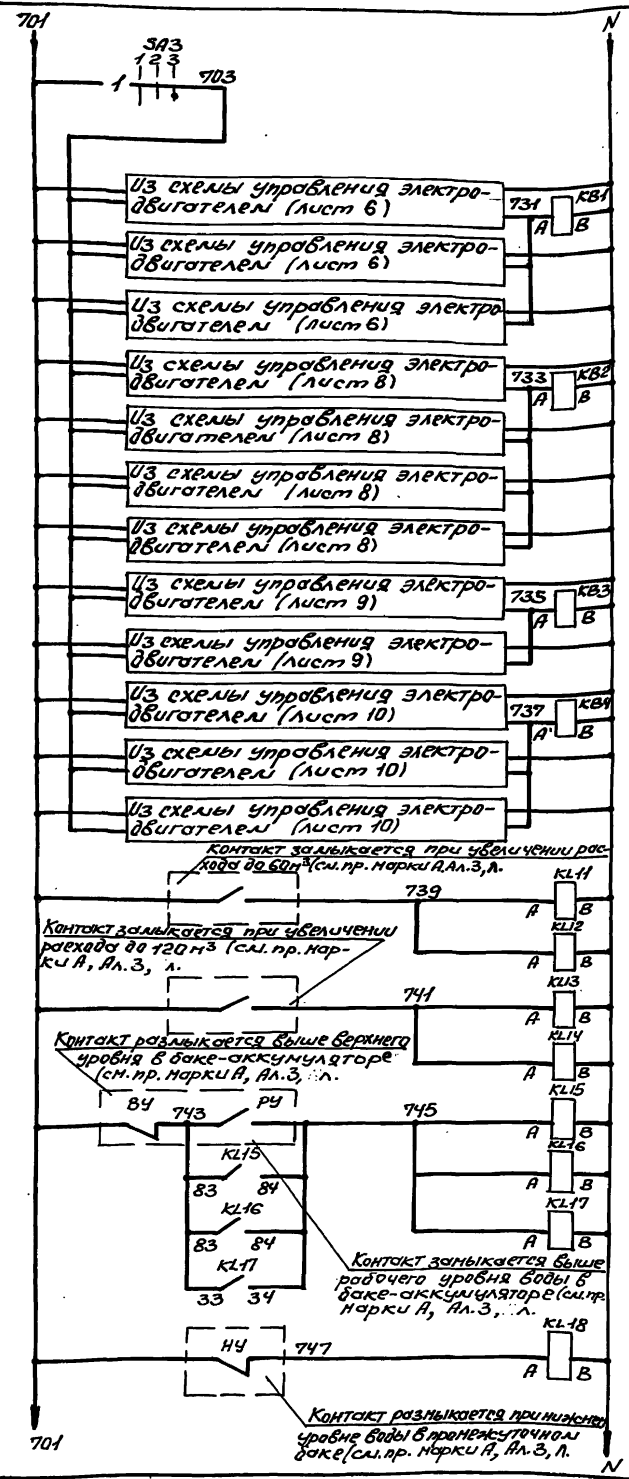 701 N
SA3
1 2 3
1 703
Из схемы управления электро-
двигателем (лист 6)
731 KB1
A B
Из схемы управления электро-
двигателем (лист 6)
Из схемы управления электро
двигателем (лист 6)
Из схемы управления электро-
двигателем (лист 8)
733 KB2
A B
Из схемы управления электро-
двигателем (лист 8)
Из схемы управления электро-
двигателем (лист 8)
Из схемы управления электро-
двигателем (лист 8)
Из схемы управления электро-
двигателем (лист 9)
735 KB3
A B
Из схемы управления электро-
двигателем (лист 9)
Из схемы управления электро-
двигателем (лист 10)
737 KB4
A B
Из схемы управления электро-
двигателем (лист 10)
Из схемы управления электро-
двигателем (лист 10)
Контакт замыкается при увеличении рас-
хода до 60м³ (см. пр. марки А, Ал.3, л.
739 KL11
A B
KL12
A B
Контакт замыкается при увеличении
расхода до 120м³ (см. пр. мар-
ки А, Ал.3, л.
741 KL13
A B
KL14
A B
Контакт размыкается выше верхнего
уровня в баке-аккумуляторе
(см. пр. марки А, Ал.3, л.
ВУ 743 РУ 745 KL15
A B
KL15
83 84
KL16
A B
KL16
83 84
KL17
A B
KL17
33 34
Контакт замыкается выше
рабочего уровня воды в
баке-аккумуляторе (см. пр.
марки А, Ал.3, л.
НУ 747 KL18
A B
Контакт размыкается при нижнем
уровне воды в промежуточном
баке (см. пр. марки А, Ал.3, л.
701 N